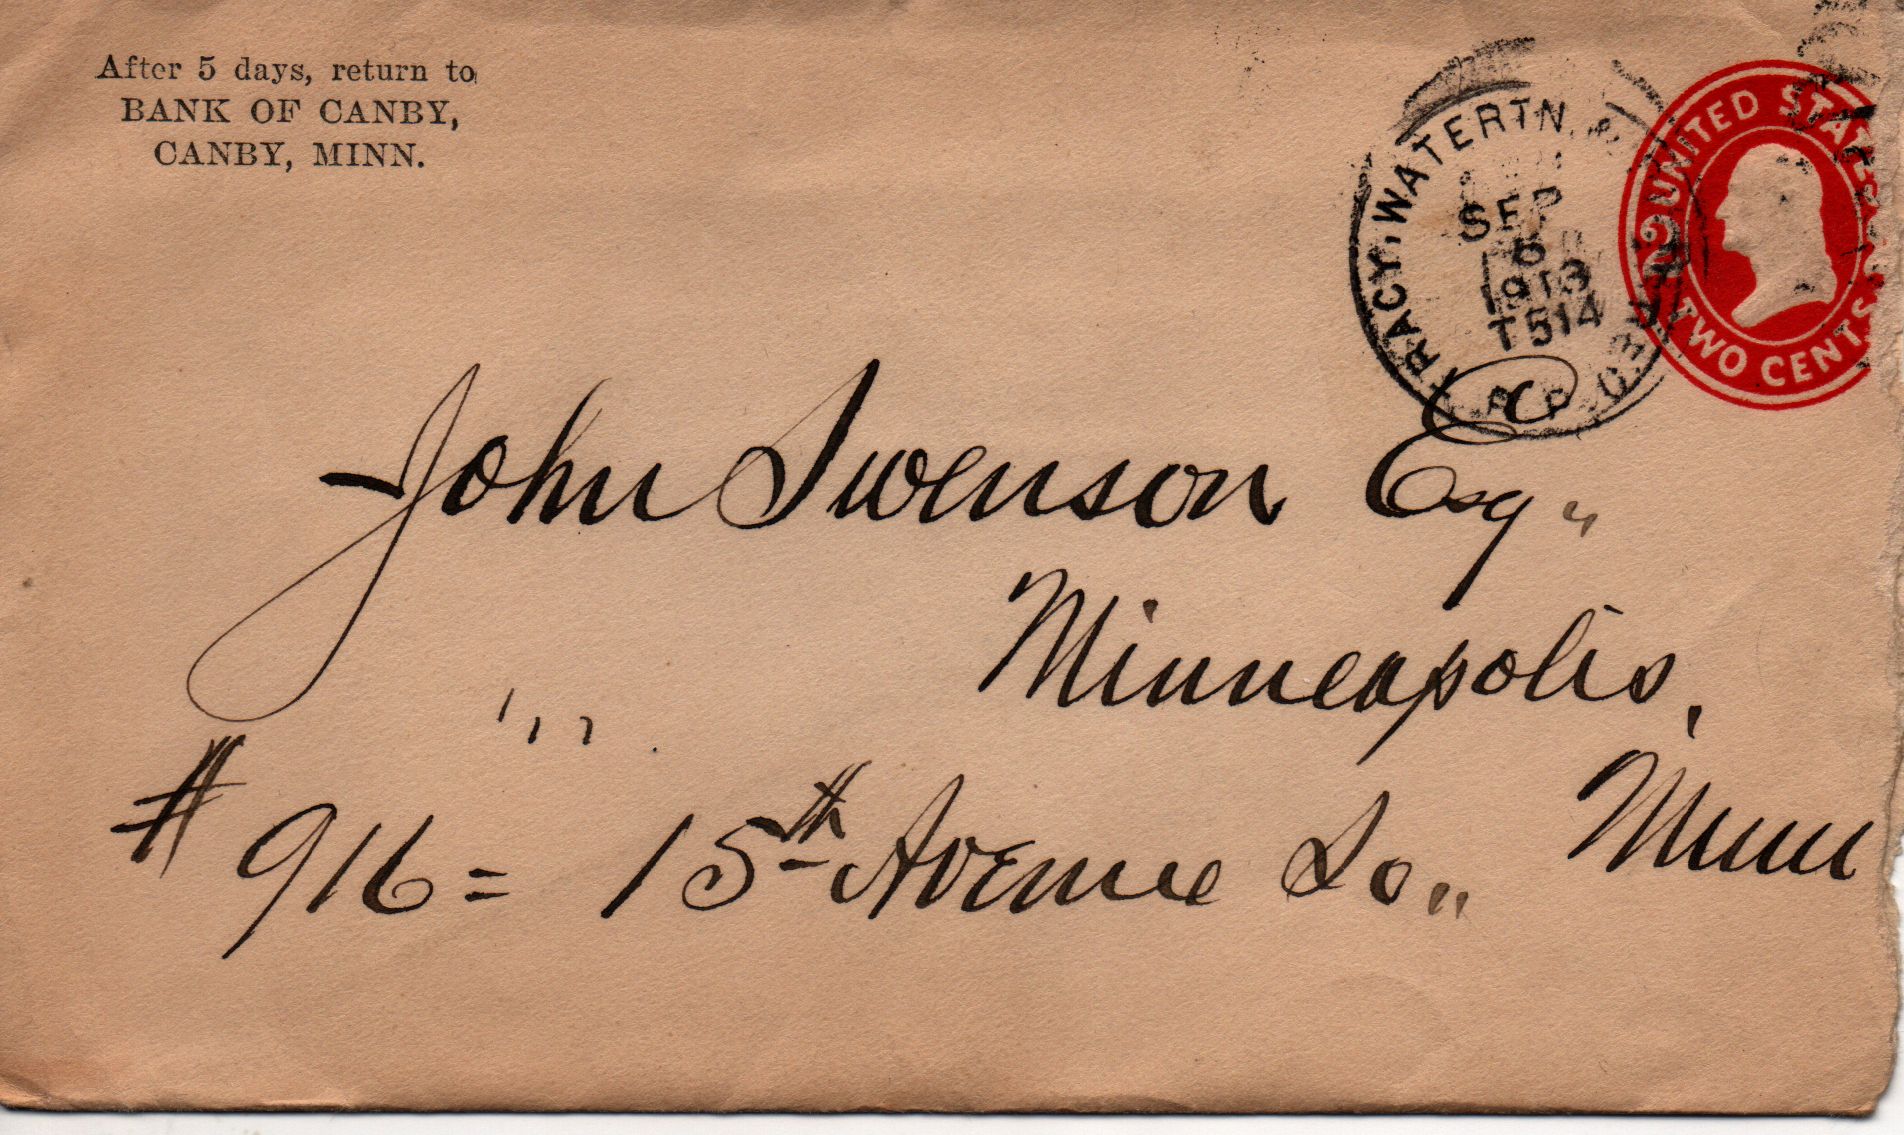 After 5 days, return to
BANK OF CANBY,
CANBY, MINN.
TRACY, WATERTN. & 
SEP
6
1913
T 514
R.P.O.
UNITED STATES
2
TWO CENTS
John Swenson Esq.
Minneapolis,
Minn
# 916 = 15th Avenue So.